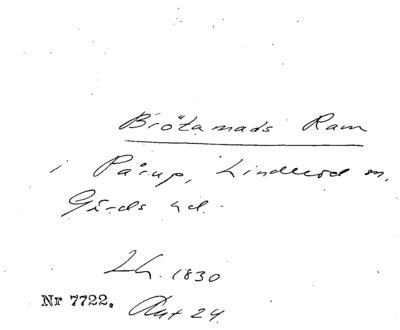 Brötamads Ram
i Pårup, Linderöd sn.
Gärds hd.
Lh. 1830
Nr 7722. Akt 24.